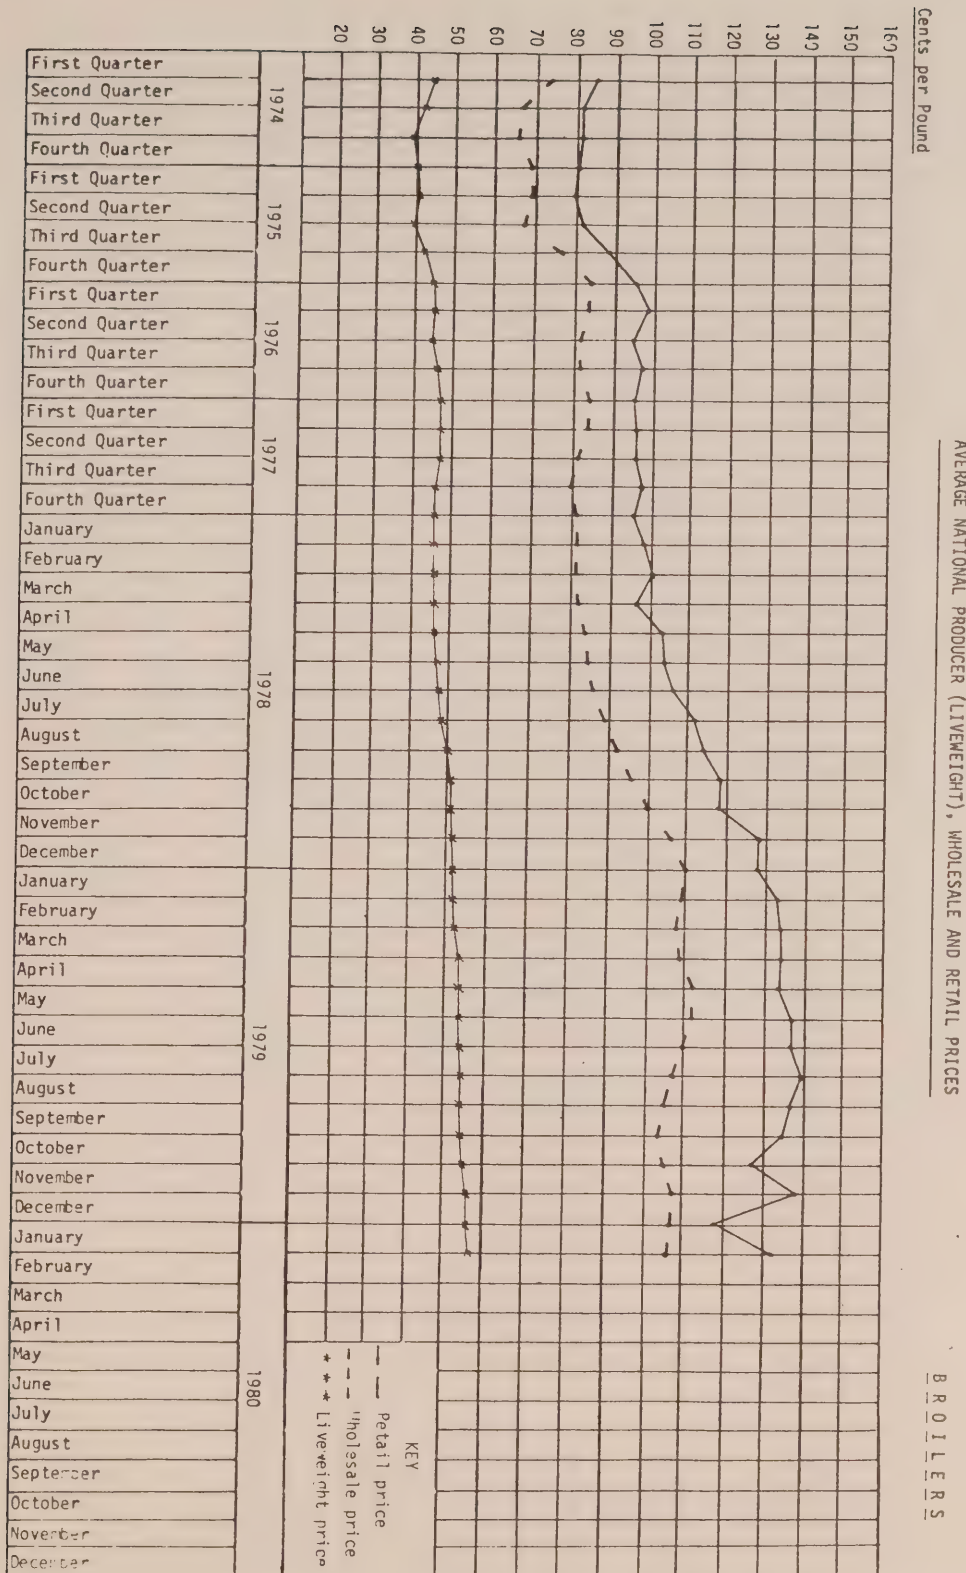 AVERAGE NATIONAL PRODUCER (LIVEWEIGHT), WHOLESALE AND RETAIL PRICES
B R O I L E R S
Cents per Pound
160
150
140
130
120
110
100
90
80
70
60
50
40
30
20
First Quarter
Second Quarter
Third Quarter
Fourth Quarter
1974
First Quarter
Second Quarter
Third Quarter
Fourth Quarter
1975
First Quarter
Second Quarter
Third Quarter
Fourth Quarter
1976
First Quarter
Second Quarter
Third Quarter
Fourth Quarter
1977
January
February
March
April
May
June
July
August
September
October
November
December
1978
January
February
March
April
May
June
July
August
September
October
November
December
1979
January
February
March
April
May
June
July
August
September
October
November
December
1980
KEY
— — Retail price
- - - Wholesale price
* * * Liveweight price